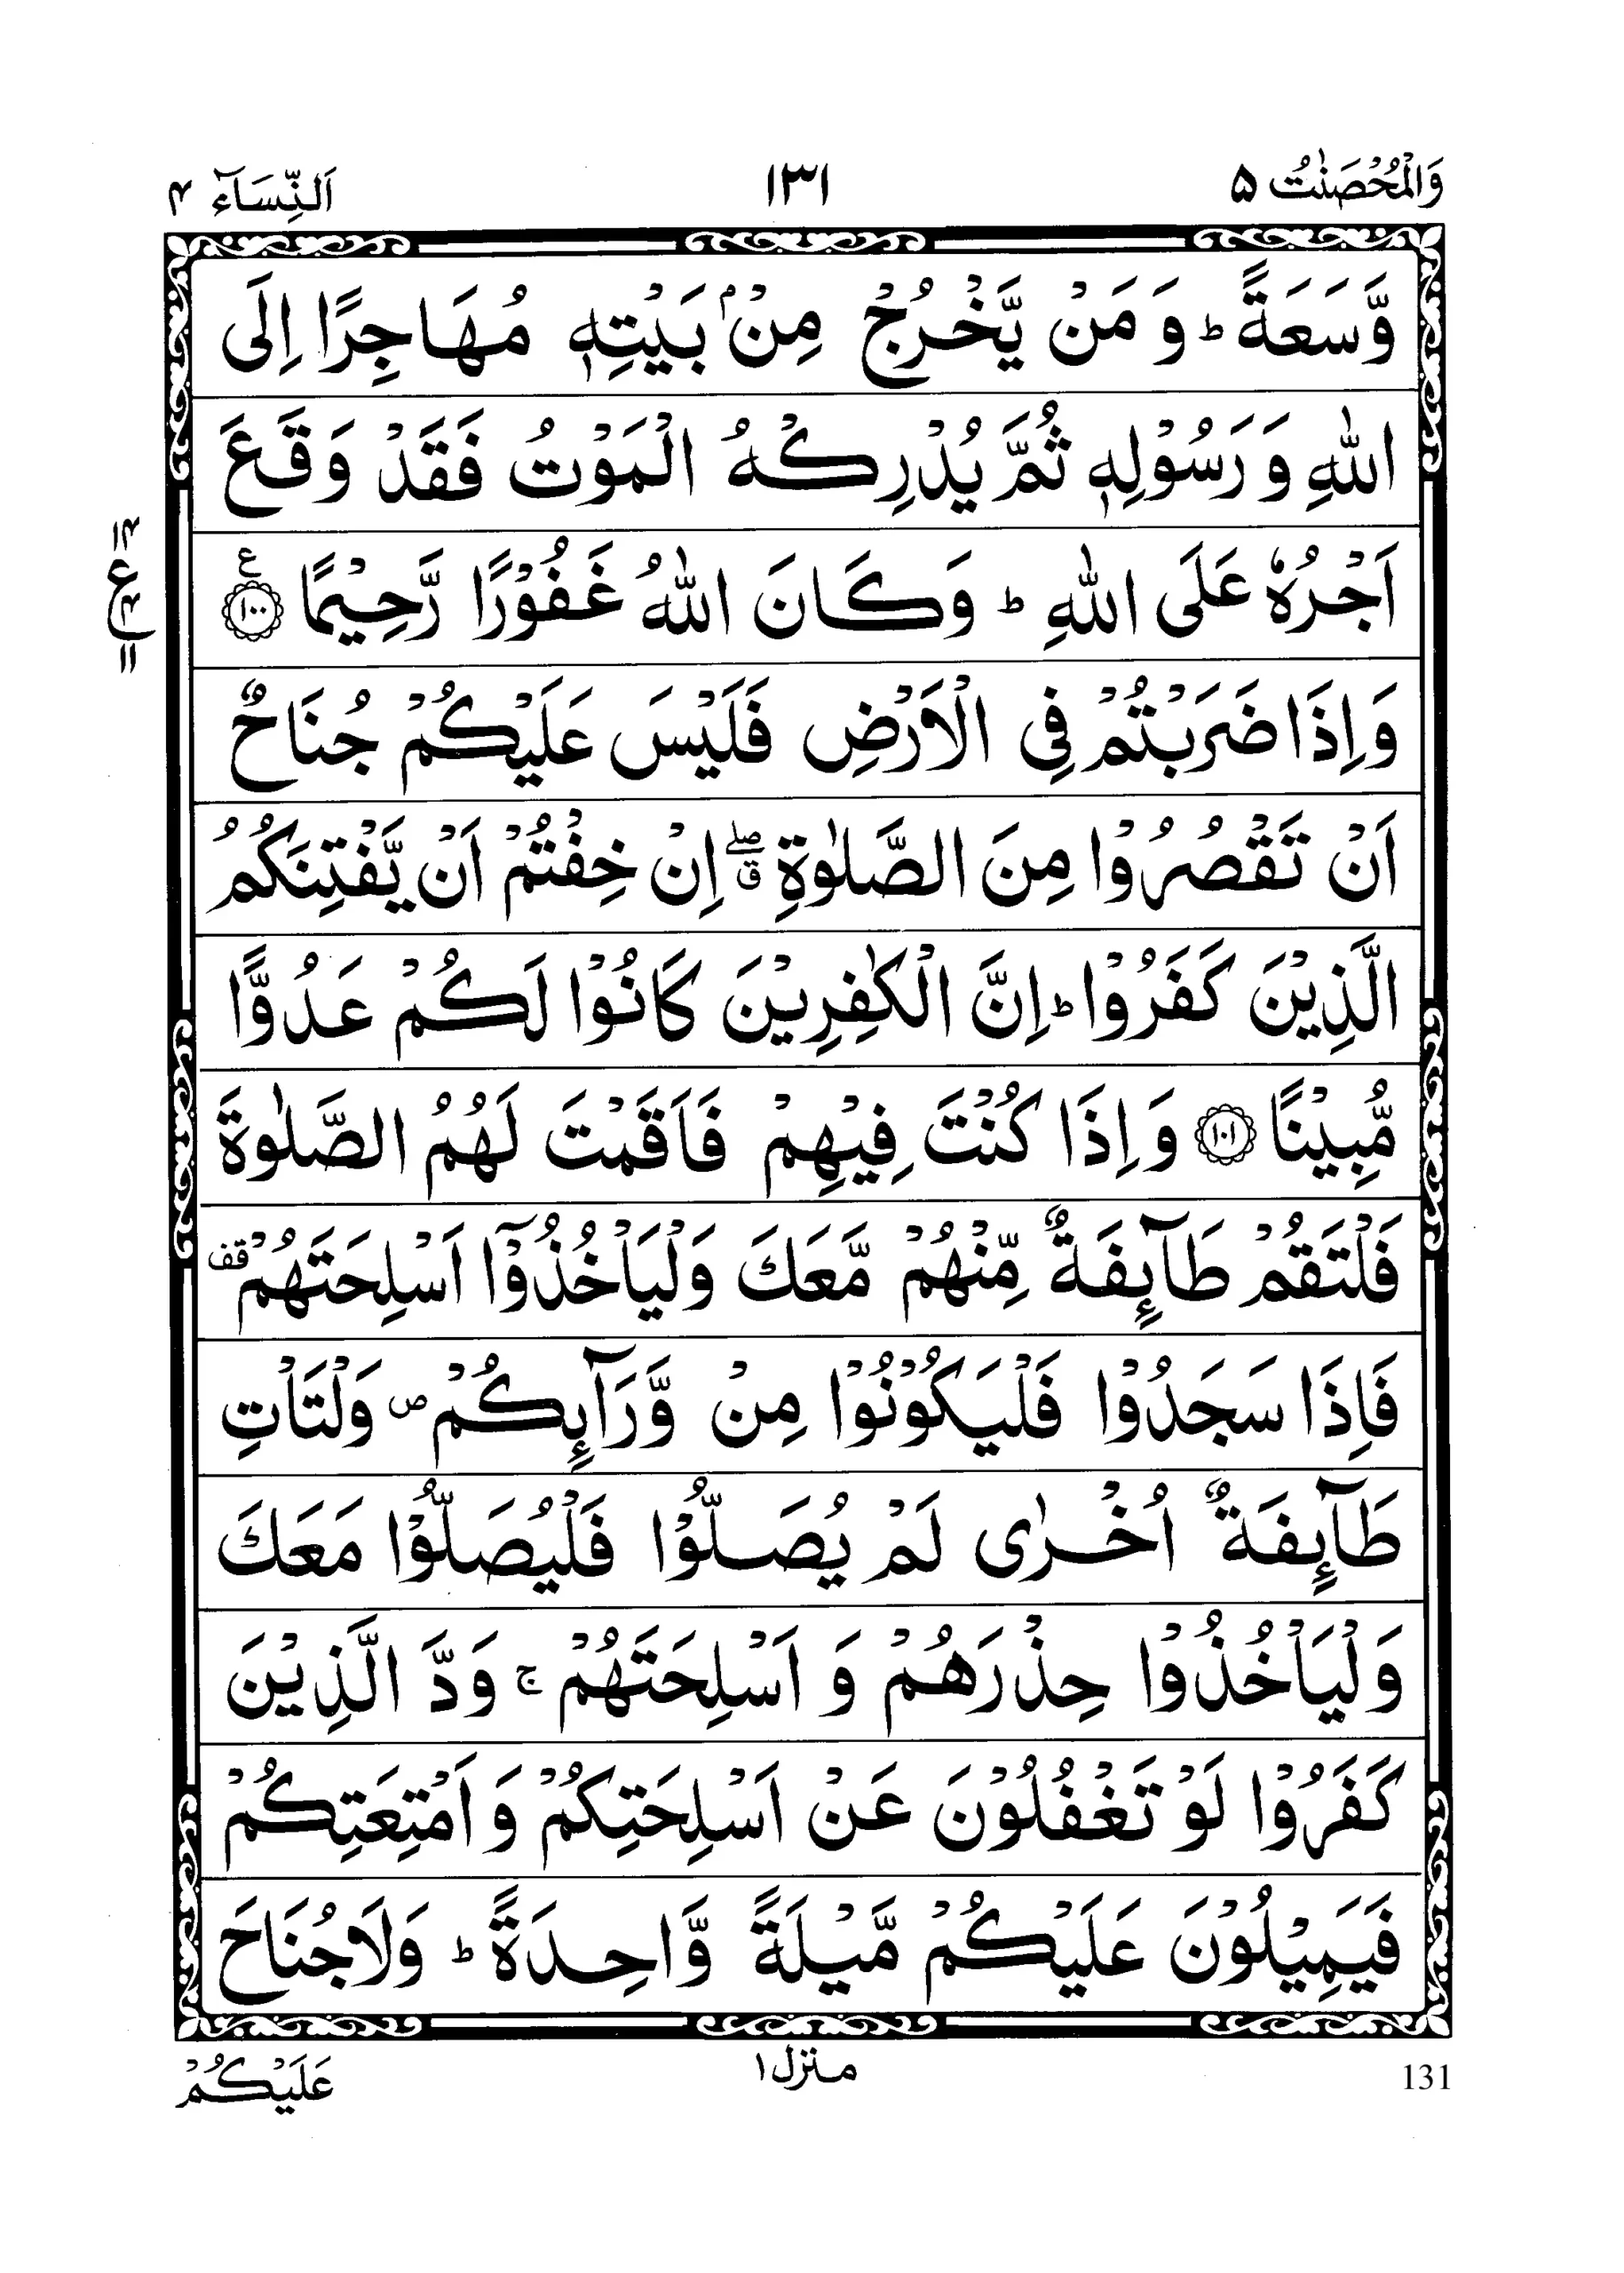 وَالْمُحْصَنٰتُ ۵ ۱۳۱ اَلنِّسَآء ۴
وَّسَعَةً ؕ وَ مَنْ یَّخْرُجْ مِنْۢ بَیْتِهٖ مُهَاجِرًا اِلَی
اللّٰهِ وَ رَسُوْلِهٖ ثُمَّ یُدْرِكْهُ الْمَوْتُ فَقَدْ وَقَعَ
اَجْرُهٗ عَلَی اللّٰهِ ؕ وَكَانَ اللّٰهُ غَفُوْرًا رَّحِیْمًا ﴿۱۰۰﴾ ع
۱۴
ع
۴
۱۱
وَاِذَا ضَرَبْتُمْ فِی الْاَرْضِ فَلَیْسَ عَلَیْكُمْ جُنَاحٌ
اَنْ تَقْصُرُوْا مِنَ الصَّلٰوةِ ۖق اِنْ خِفْتُمْ اَنْ یَّفْتِنَكُمُ
الَّذِیْنَ كَفَرُوْا ؕ اِنَّ الْكٰفِرِیْنَ كَانُوْا لَكُمْ عَدُوًّا
مُّبِیْنًا ﴿۱۰۱﴾ وَ اِذَا كُنْتَ فِیْهِمْ فَاَقَمْتَ لَهُمُ الصَّلٰوةَ
فَلْتَقُمْ طَآىِٕفَةٌ مِّنْهُمْ مَّعَكَ وَلْیَاْخُذُوْۤا اَسْلِحَتَهُمْ قف
فَاِذَا سَجَدُوْا فَلْیَكُوْنُوْا مِنْ وَّرَآىِٕكُمْ ص وَلْتَاْتِ
طَآىِٕفَةٌ اُخْرٰی لَمْ یُصَلُّوْا فَلْیُصَلُّوْا مَعَكَ
وَلْیَاْخُذُوْا حِذْرَهُمْ وَ اَسْلِحَتَهُمْ ۚ وَدَّ الَّذِیْنَ
كَفَرُوْا لَوْ تَغْفُلُوْنَ عَنْ اَسْلِحَتِكُمْ وَ اَمْتِعَتِكُمْ
فَیَمِیْلُوْنَ عَلَیْكُمْ مَّیْلَةً وَّاحِدَةً ؕ وَلَا جُنَاحَ
131 منزل ۱ عَلَیْكُمْ